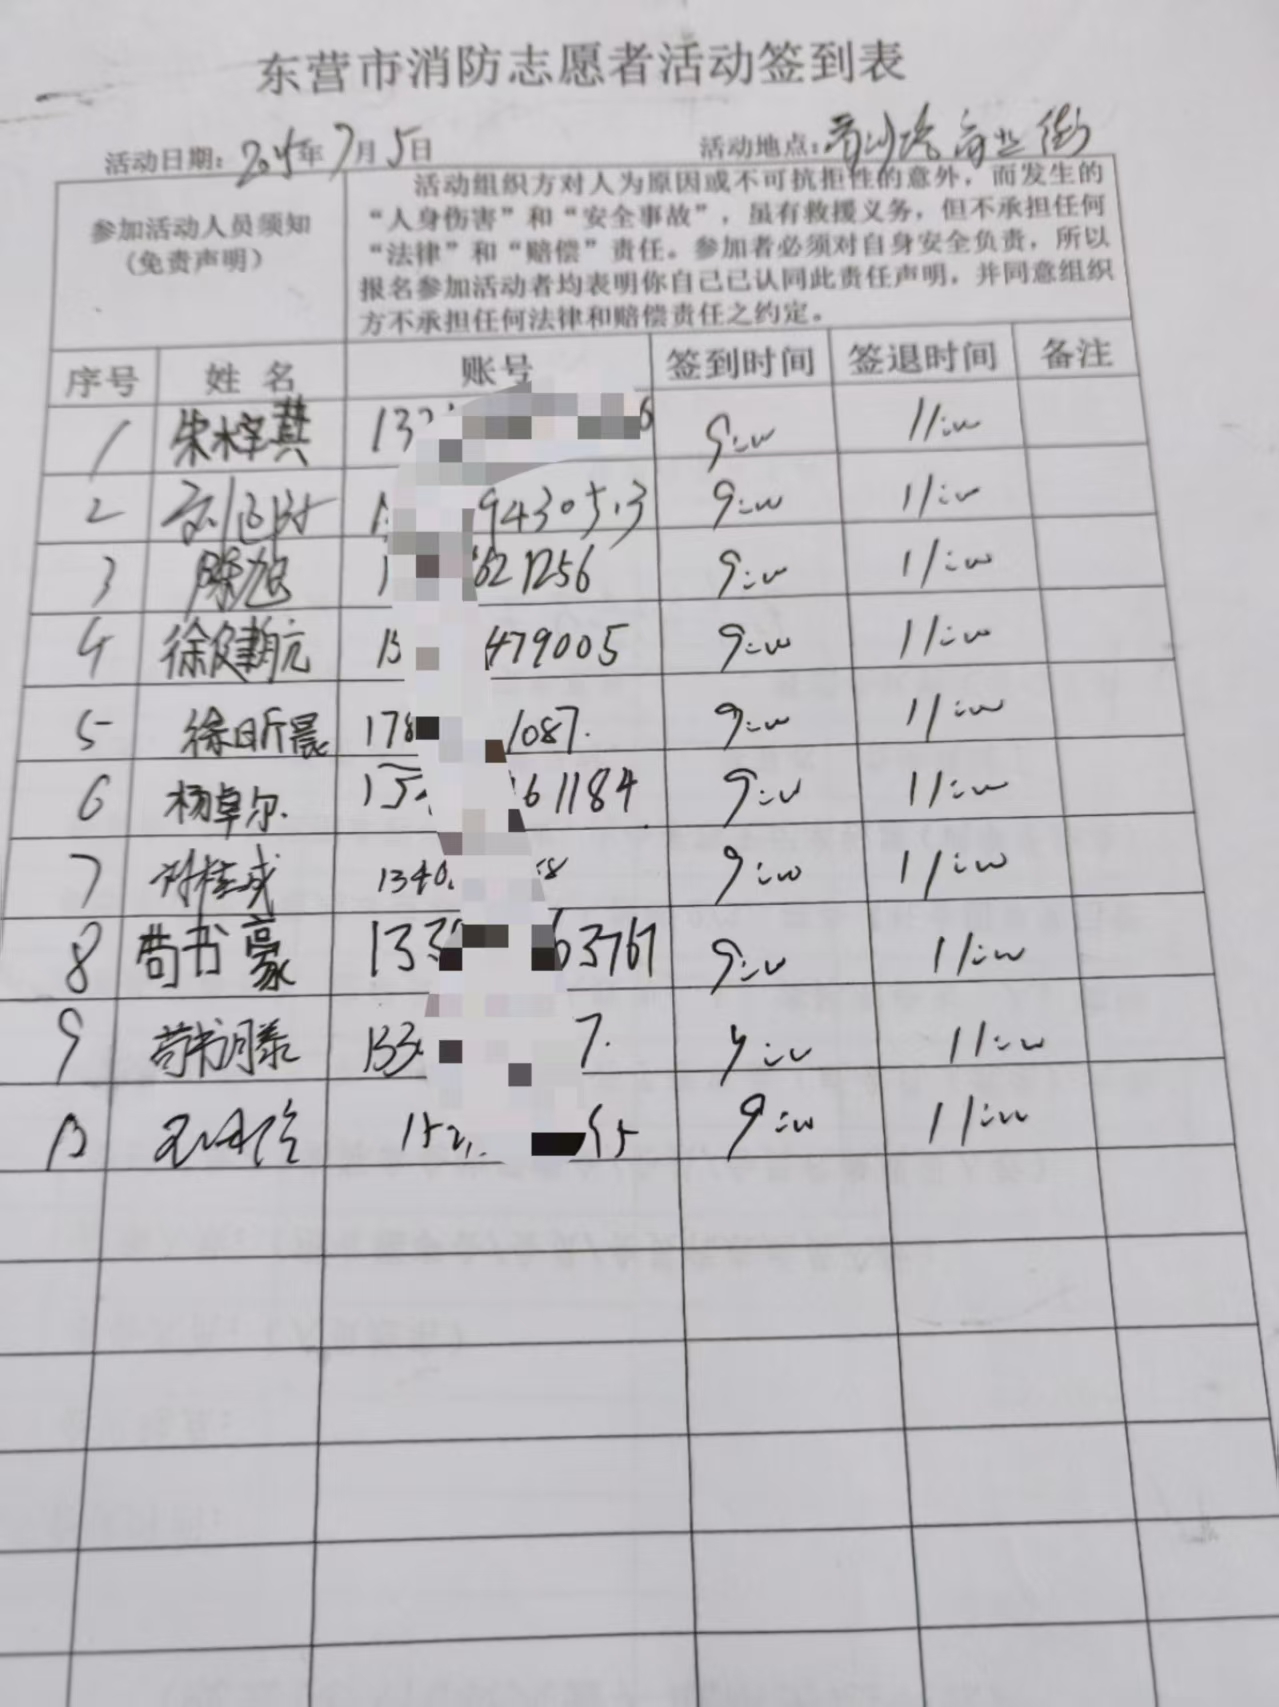 东营市消防志愿者活动签到表
活动日期：2025年7月5日 活动地点：商业街
参加活动人员须知
（免责声明）
活动组织方对人为原因或不可抗拒性的意外，而发生的
“人身伤害”和“安全事故”，虽有救援义务，但不承担任何
“法律”和“赔偿”责任。参加者必须对自身安全负责，所以
报名参加活动者均表明你自己已认同此责任声明，并同意组织
方不承担任何法律和赔偿责任之约定。
序号 姓名 账号 签到时间 签退时间 备注
1 朱梓萁 13 6 9:00 11:00
2 1 9430513 9:00 11:00
3 陈旭 1 621256 9:00 11:00
4 徐健航 13 479005 9:00 11:00
5 徐昕晨 178 1087. 9:00 11:00
6 杨卓尔. 15 61184 9:00 11:00
7 桂成 1340 8 9:00 11:00
8 苟书豪 133 63767 9:00 11:00
9 苟书滕 133 7. 9:00 11:00
10 152 55 9:00 11:00